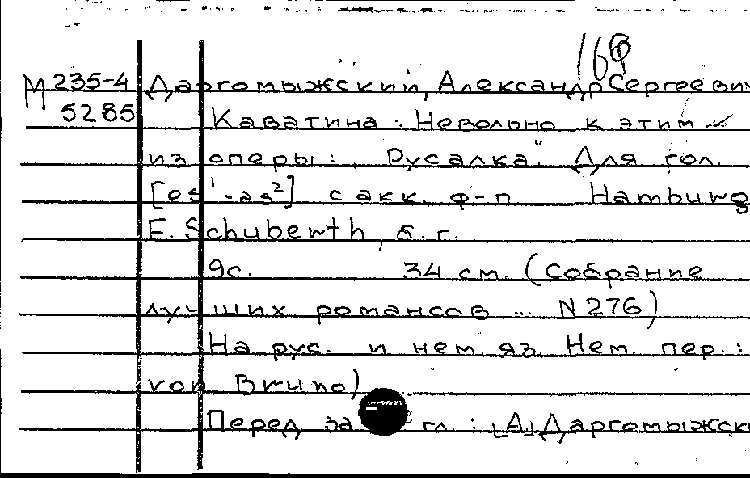 169
М 235-4 Даргомыжский, Александр Сергеевич
5285 Каватина: Невольно к этим
из оперы: „Русалка". Для гол.
[es¹-as²] с акк. ф-п Hamburg
E. Schuberth, б. г.
9с. 34 см. (Собрание
лучших романсов ... N 276)
На рус. и нем. яз. Нем. пер.:
von Bruno)
Перед за гл.: „А. Даргомыжск